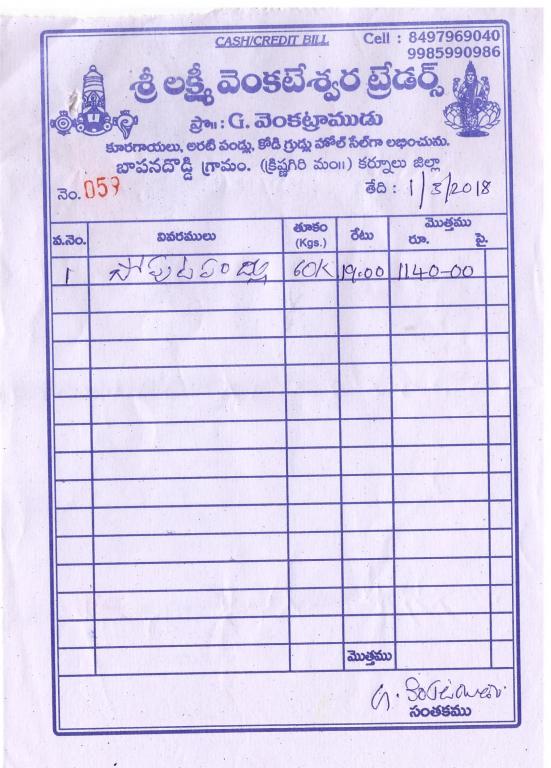 CASH/CREDIT BILL Cell : 8497969040
9985990986
శ్రీ లక్ష్మీ వెంకటేశ్వర ట్రేడర్స్
ప్రొ॥ : G. వెంకట్రాముడు
కూరగాయలు, అరటి పండ్లు, కోడి గ్రుడ్లు హోల్ సేల్‌గా లభించును.
బాపనదొడ్డి గ్రామం. (క్రిష్ణగిరి మం॥) కర్నూలు జిల్లా
నెం. 057 తేది : 1/3/2018
వ.నెం. వివరములు తూకం (Kgs.) రేటు మొత్తము రూ. పై.
1 60K 19:00 1140-00
మొత్తము
G.
సంతకము